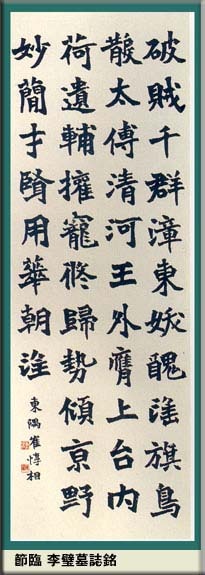 破賊千群漳東妖醜望旗鳥
散太傅清河王外膺上台内
荷遺輔權寵攸歸勢傾京野
妙簡才賢用華朝望
東隅崔惇相
節臨 李璧墓誌銘